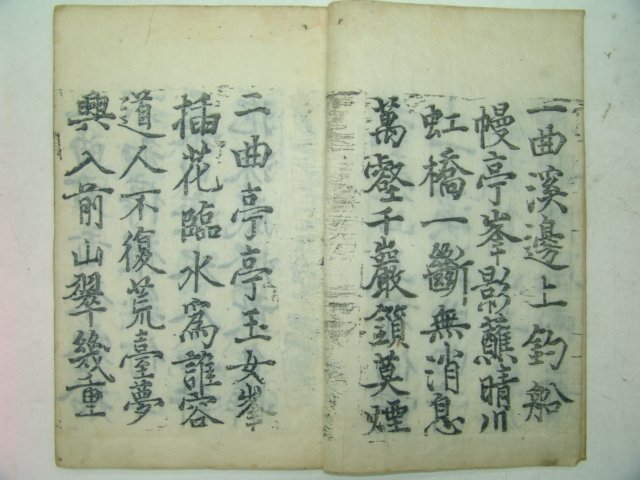 一曲溪邊上釣船
幔亭峯影蘸晴川
虹橋一斷無消息
萬壑千巖鎖莫煙
二曲亭亭玉女峯
插花臨水爲誰容
道人不復荒臺夢
興入前山翠幾重